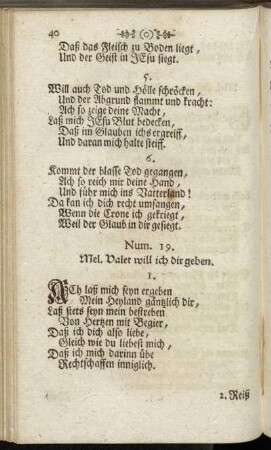 40 (0)
Daß das Fleisch zu Boden liegt,
Und der Geist in JEsu siegt.
5.
Will auch Tod und Hölle schröcken,
Und der Abgrund flammt und kracht:
Ach so zeige deine Macht,
Laß mich JEsu Blut bedecken,
Daß im Glauben ichs ergreiff,
Und daran mich halte steiff.
6.
Kommt der blasse Tod gegangen,
Ach so reich mir deine Hand,
Und führ mich ins Vatterland!
Da kan ich dich recht umfangen,
Wenn die Crone ich gekriegt,
Weil der Glaub in dir gesiegt.
Num. 19.
Mel. Valet will ich dir geben.
1.
ACh laß mich seyn ergeben
Mein Heyland gäntzlich dir,
Laß stets seyn mein bestreben
Von Hertzen mit Begier,
Daß ich dich also liebe,
Gleich wie du liebest mich,
Daß ich mich darinn übe
Rechtschaffen inniglich.
2. Reiß